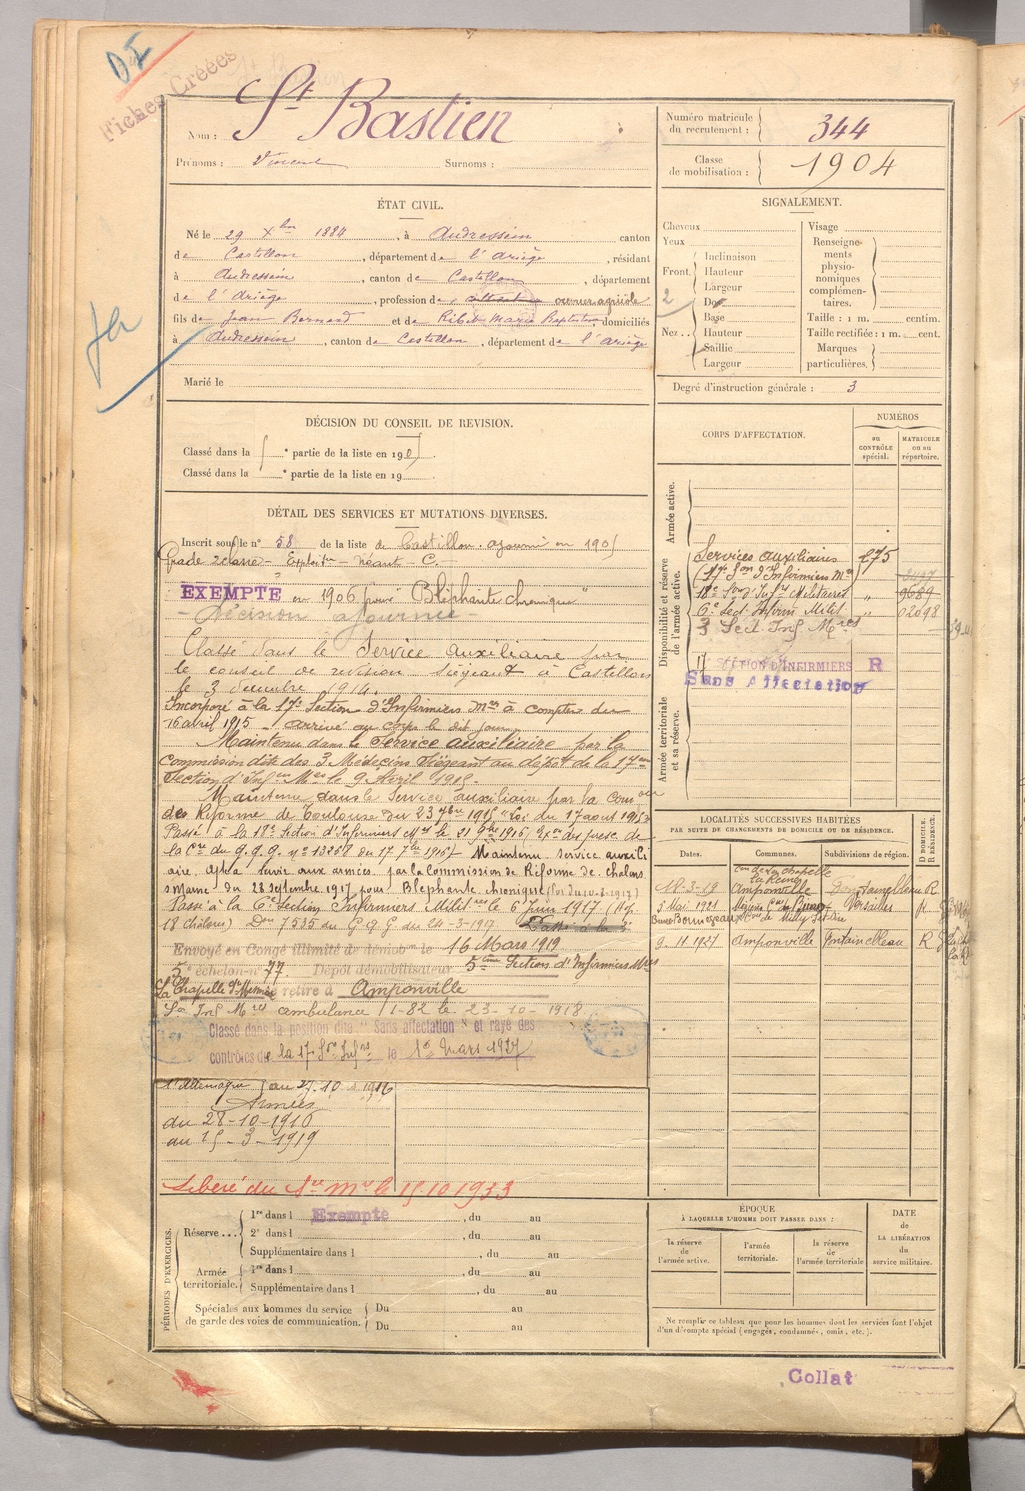 Fiches Créées
Nom : St Bastien
Prénoms : Vincent Surnoms :
Numéro matricule du recrutement : 344
Classe de mobilisation : 1904
ÉTAT CIVIL.
Né le 29 Xbre 1884, à Audressein canton
de Castillon, département de l'Ariège, résidant
à Audressein, canton de Castillon, département
de l'Ariège, profession de cultivateur ouvrier agricole
fils de Jean Bernard et de Marie domiciliés
à Audressein, canton de Castillon, département de l'Ariège
Marié le
SIGNALEMENT.
Cheveux
Yeux
Front. Inclinaison
Hauteur
Largeur
Nez ... Dos
Base
Hauteur
Saillie
Largeur
Visage
Renseignements physionomiques complémentaires.
Taille : 1 m. centim.
Taille rectifiée : 1 m. cent.
Marques particulières.
Degré d'instruction générale : 3
DÉCISION DU CONSEIL DE REVISION.
Classé dans la e partie de la liste en 190
Classé dans la e partie de la liste en 19
DÉTAIL DES SERVICES ET MUTATIONS DIVERSES.
Inscrit sous le n° 58 de la liste de Castillon. ajourné en 1905
EXEMPTE en 1906 pour "Blépharite chronique"
Décision ajournée
Classé dans le Service auxiliaire par
le conseil de revision siégeant à Castillon
le 3 décembre 1914.
Incorporé à la 17e Section d'Infirmiers Mres à compter du
16 avril 1915 - arrivé au corps le dit jour
Maintenu dans le Service auxiliaire par la
commission dite des 3 Médecins siégeant au dépôt de la 17eme
Section d'Infers Mres le 9 Avril 1918.
Maintenu dans le Service auxiliaire par la Comon
des Réforme de Toulouse du 23 7bre 1915 "Loi du 17 août 1915"
Passé à la 18e Section d'Infirmiers Mres le 21 9bre 1916,
Maintenu service auxili
aire, apte à servir aux armées par la Commission de Réforme de Chalons
s Marne du 28 septembre 1917 pour Blépharite chronique
Passé à la 6e Section Infirmiers Militres le 6 Juin 1917
18 châlons) Don 7535 du G.Q.G du 24-3-1917
Envoyé en Congé illimité de démobon le 16 Mars 1919
5e échelon - n° 77. Dépôt démobilisateur 5ème Section d'Infirmiers Mres
se retire à Amponville
ambulance 1-82 le 23-10-1918.
Classé dans la position dite "Sans affectation" et rayé des
contrôles de la 17e Son Infrs le 1er Mars 1927
l'Allemagne au 27-10-1916
Armées
du 28-10-1916
au 15-3-1919
Libéré du Sce Mre le 15.10.1933
CORPS D'AFFECTATION.
NUMÉROS
au CONTRÔLE spécial.
MATRICULE ou au répertoire.
Armée active.
Disponibilité et réserve de l'armée active.
Services auxiliaires 275
(17e Son d'Infirmiers Mres
18e Son d'Infers Militaires " 9689
6e Sect. Infirm Milit. " 02098
Sect. Inf Mres
17 SECTION D'INFIRMIERS R
Sans Affectation
Armée territoriale et sa réserve.
LOCALITÉS SUCCESSIVES HABITÉES
PAR SUITE DE CHANGEMENTS DE DOMICILE OU DE RÉSIDENCE.
Dates. Communes. Subdivisions de région. D DOMICILE. R RÉSIDENCE.
18-3-19 Amponville Fontainebleau R
3 Mai 1921 Versailles R
9.11.1927 Amponville Fontainebleau R
PÉRIODES D'EXERCICES.
Réserve ... 1re dans l Exempte, du au
2e dans l , du au
Supplémentaire dans l , du au
Armée territoriale. 1re dans l , du au
Supplémentaire dans l , du au
Spéciales aux hommes du service de garde des voies de communication. Du au
Du au
ÉPOQUE
À LAQUELLE L'HOMME DOIT PASSER DANS :
la réserve de l'armée active.
l'armée territoriale.
la réserve de l'armée territoriale
DATE de LA LIBÉRATION du service militaire.
Ne remplir ce tableau que pour les hommes dont les services font l'objet
d'un décompte spécial (engagés, condamnés, omis, etc.).
Collat